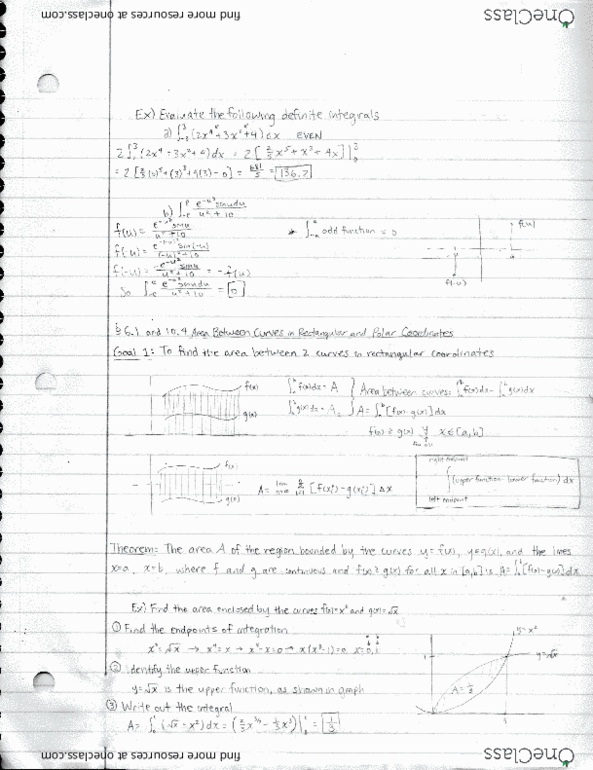 find more resources at oneclass.com
OneClass
Ex) Evaluate the following definite integrals
a) ∫₋₃³ (2x⁴+3x²+4) dx EVEN
2∫₀³ (2x⁴+3x²+4)dx = 2[⅖x⁵+x³+4x]|₀³
= 2[⅖(3)⁵+(3)³+4(3)-0] =
b) ∫ e^(-u²) sin u du / u²+10
f(u) = e^(-u²) sin u / u²+10
* ∫₋ₐᵃ odd function = 0
f(u)
f(-u) = e^(-(-u)²) sin(-u) / (-u)²+10
f(-u) = -e^(-u²) sin u / u²+10 = -f(u)
a
f(-u)
So ∫ e^(-u²) sin u du / u²+10 = 0
§6.1 and 10.4 Area Between Curves in Rectangular and Polar Coordinates
Goal 1: To find the area between 2 curves in rectangular coordinates
f(x)
g(x)
∫ₐᵇ f(x)dx = A
Area between curves: ∫ₐᵇ f(x)dx - ∫ₐᵇ g(x)dx
∫ₐᵇ g(x)dx = A₂
A = ∫ₐᵇ [f(x)-g(x)]dx
f(x) ≥ g(x) ∀ x∈[a,b]
for all
f(x)
g(x)
A = lim Σ [f(xᵢ*)-g(xᵢ*)] Δx
right
∫ (upper function - lower function) dx
left
Theorem: The area A of the region bounded by the curves y=f(x), y=g(x), and the lines
x=a, x=b, where f and g are continuous and f(x) ≥ g(x) for all x in [a,b] is A=∫ₐᵇ[f(x)-g(x)]dx
Ex) Find the area enclosed by the curves f(x)=x² and g(x)=√x
① Find the endpoints of integration
x²=√x → x⁴=x → x⁴-x=0 → x(x³-1)=0 x=0,1
② Identify the upper function
y=√x is the upper function, as shown in graph
③ Write out the integral
A= ∫₀¹ (√x - x²)dx = (⅔x^(3/2) - ⅓x³)|₀¹ = ⅓
y=x²
y=√x
A=⅓
1
find more resources at oneclass.com
OneClass